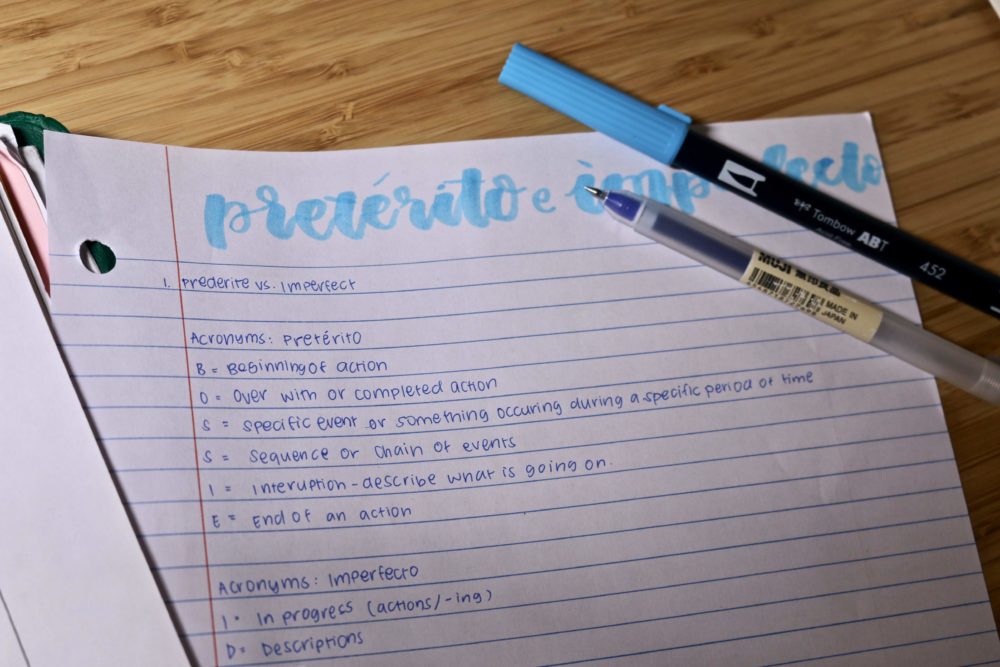 pretérito e imperfecto
1. Prederite vs. Imperfect
Acronyms: Pretérito
B = Beginning of action
O = Over with or completed action
S = Specific event or something occuring during a specific period of time
S = Sequence or chain of events
I = Interuption - describe what is going on.
E = End of an action
Acronyms: Imperfecto
I = In progress (actions/-ing)
D = Descriptions
Tombow ABT
452
MUJI 無印良品
MADE IN
JAPAN